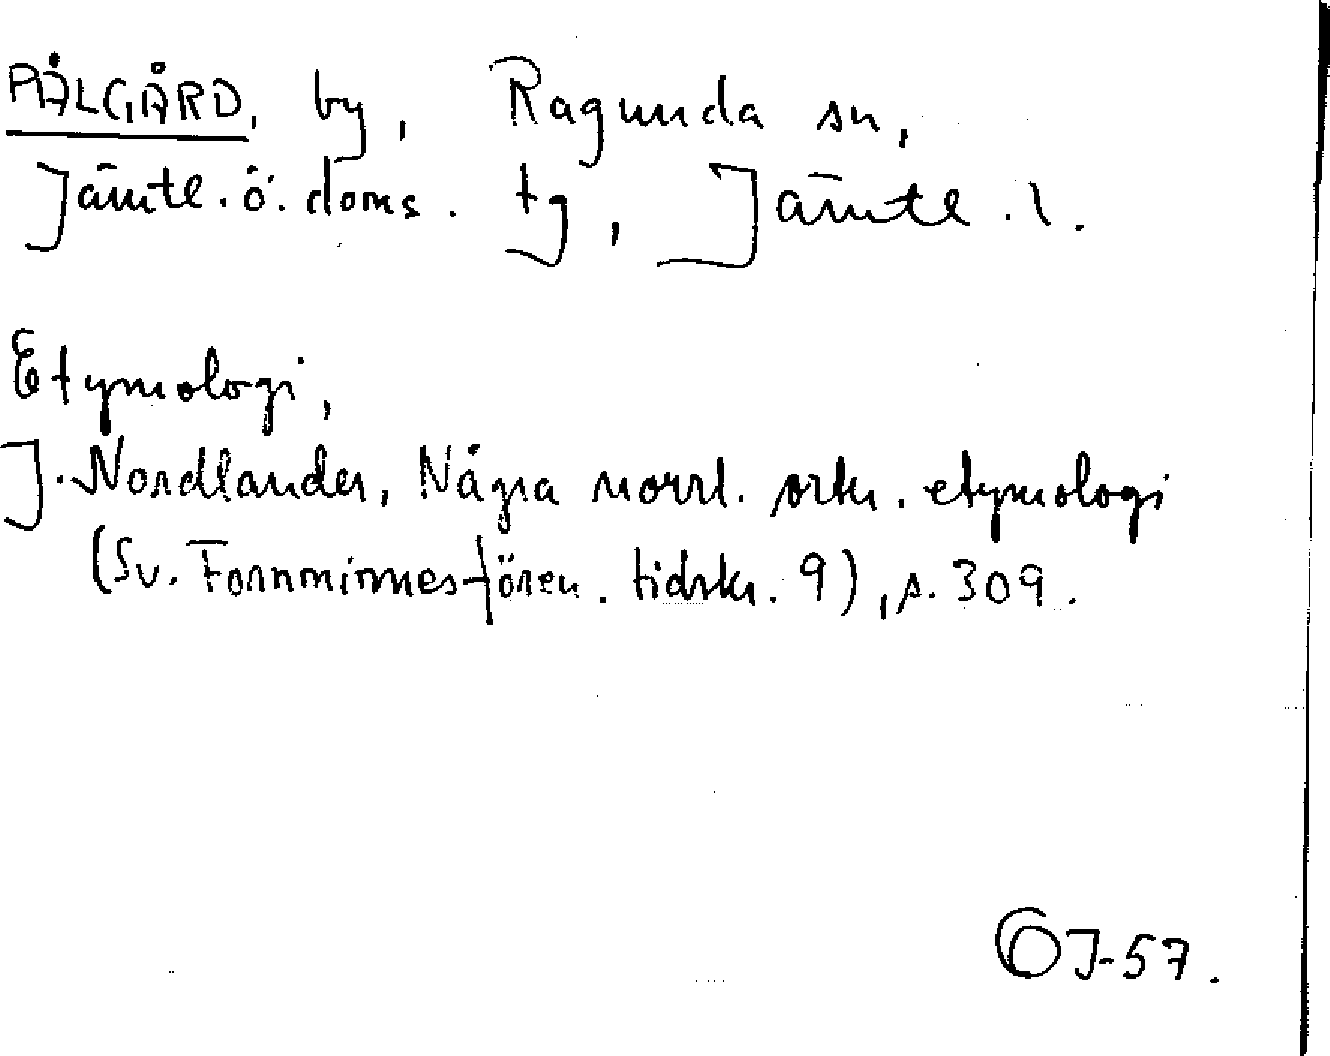 PÅLGÅRD, by, Ragunda sn,
Jämtl. ö. doms. tg, Jämtl. l.
Etymologi,
J. Nordlander, Några norrl. ortn. etymologi
(Sv. Fornminnesfören. tidskr. 9), s. 309.
J-57.